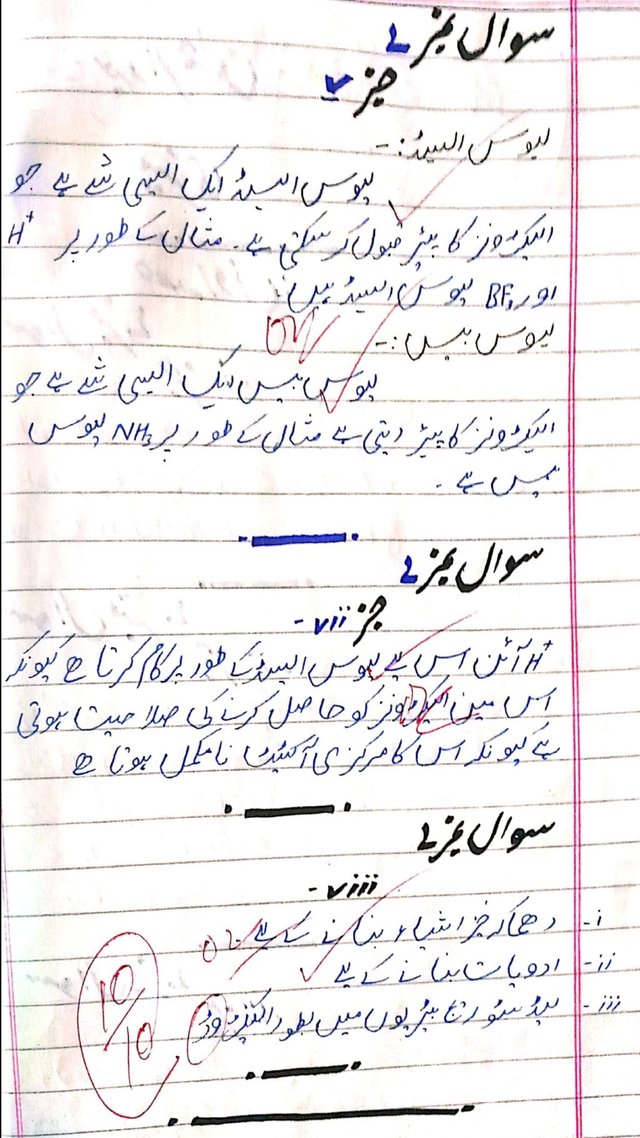 سوال نمبر 2
جز v
لیوس ایسڈ:-
لیوس ایسڈ ایک ایسی شے ہے جو
الیکٹرونز کا پیئر قبول کر سکتی ہے۔ مثال کے طور پر H⁺
اور BF₃ لیوس ایسڈ ہیں۔
لیوس بیس:-
لیوس بیس ایک ایسی شے ہے جو
الیکٹرونز کا پیئر دیتی ہے مثال کے طور پر NH₃ لیوس
بیس ہے۔
سوال نمبر 2
جز vii-
H⁺ آئن اس لیے لیوس ایسڈ کے طور پر کام کرتا ہے کیونکہ
اس میں الیکٹرونز کو حاصل کرنے کی صلاحیت ہوتی
ہے کیونکہ اس کا مرکزی آکٹیٹ نامکمل ہوتا ہے
سوال نمبر 2
viii-
i- دھماکہ خیز اشیاء بنانے کے لیے
ii- ادویات بنانے کے لیے
iii- لیڈ سٹوریج بیٹریوں میں بطور الیکٹرولائٹ
10/10